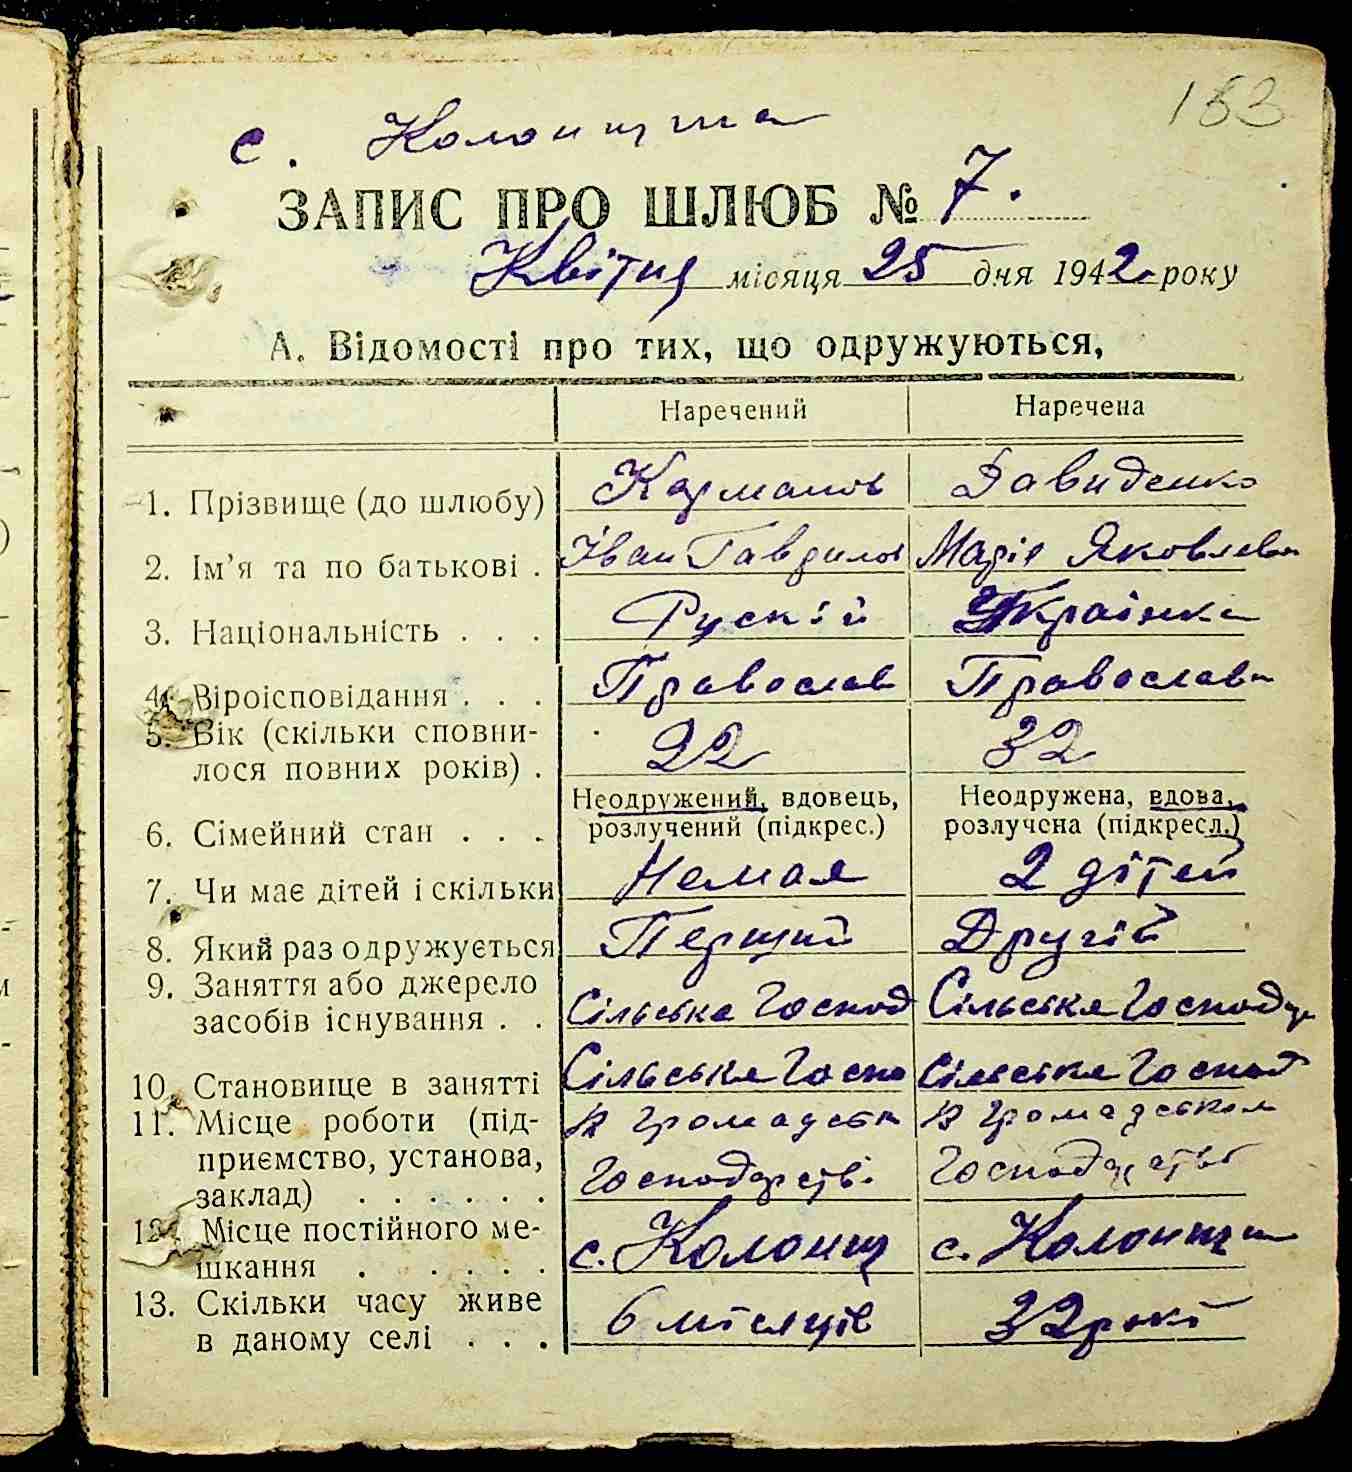 153
с. Колонщина
ЗАПИС ПРО ШЛЮБ № 7.
Квітня місяця 25 дня 1942 року
А. Відомості про тих, що одружуються,
Наречений Наречена
1. Прізвище (до шлюбу) Карманов Давиденко
2. Ім'я та по батькові . Іван Гаврилов Марія Яковлевн
3. Національність . . . Рускій Українка
4. Віроісповідання . . . Православ Православн
5. Вік (скільки сповни-
лося повних років) . 22 32
6. Сімейний стан . . . Неодружений, вдовець, розлучений (підкрес.) Неодружена, вдова, розлучена (підкресл.)
7. Чи має дітей і скільки Немая 2 дітей
8. Який раз одружується Перший Другій
9. Заняття або джерело
засобів існування . . Сільське Господ Сільське Господар
10. Становище в занятті Сільське Госпо Сільське Господ
11. Місце роботи (під- В громадськ В громадськом
приємство, установа, Господарстві Господарстві
заклад) . . . . . .
12. Місце постійного ме-
шкання . . . . . с. Колонщ с. Колонщин
13. Скільки часу живе
в даному селі . . . 6 місяців 32 рокі